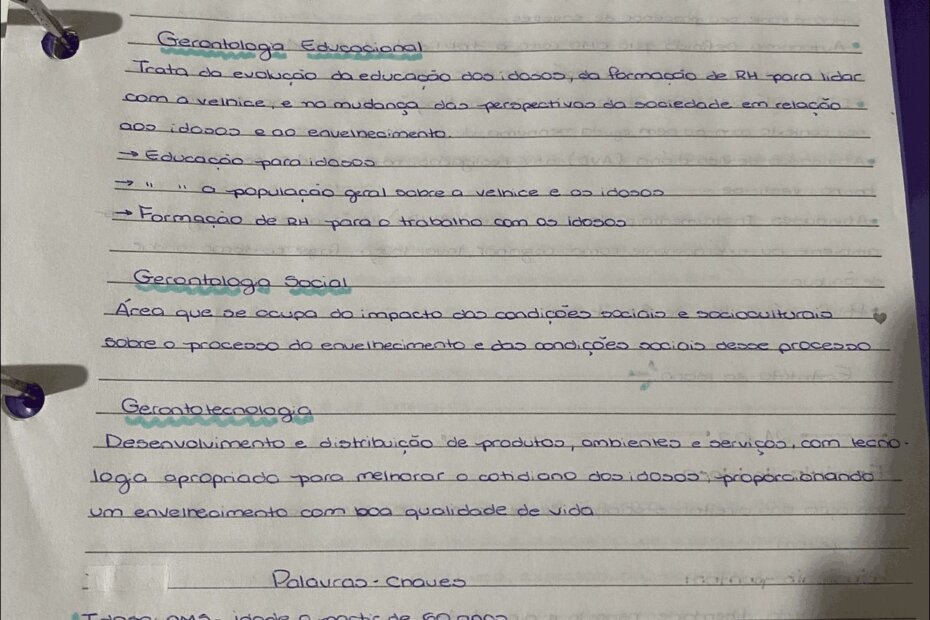 Gerontologia Educacional
Trata da evolução da educação dos idosos, da formação de RH para lidar
com a velhice, e na mudança das perspectivas da sociedade em relação
aos idosos e ao envelhecimento.
→ Educação para idosos
→ " " a população geral sobre a velhice e os idosos
→ Formação de RH para o trabalho com os idosos
Gerontologa Social
Área que se ocupa do impacto das condições sociais e socioculturais
sobre o processo do envelhecimento e das condições sociais desse processo
Gerontotecnologia
Desenvolvimento e distribuição de produtos, ambientes e serviços, com tecno-
logia apropriada para melhorar o cotidiano dos idosos, proporcionando
um envelhecimento com boa qualidade de vida
Palavras-Chaves
Idoso OMS- idade a partir de 60 anos